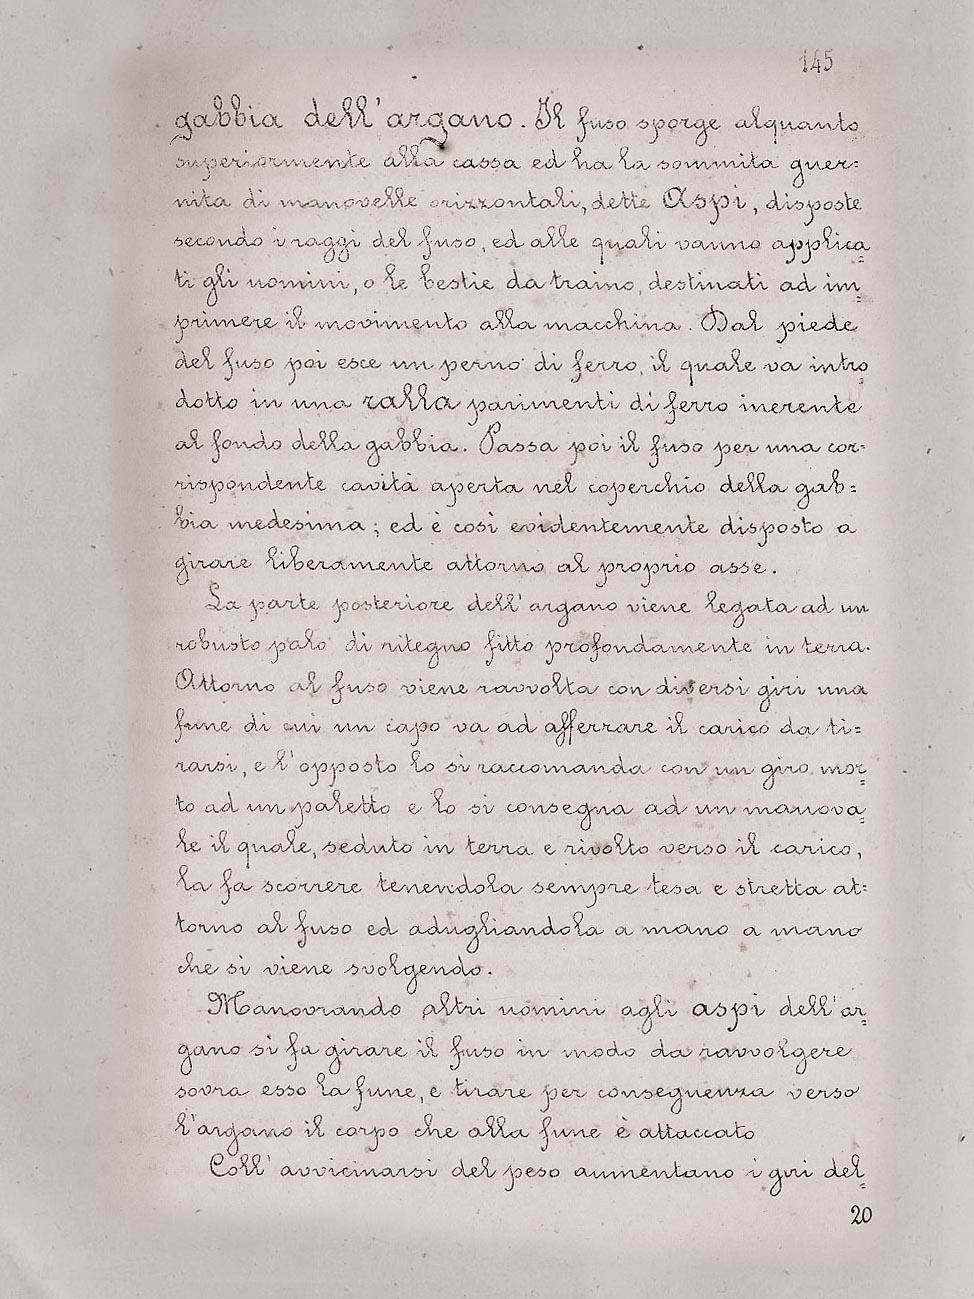 145
gabbia dell'argano. Il fuso sporge alquanto
superiormente alla cassa ed ha la sommità guer=
nita di manovelle orizzontali, dette Aspi, disposte
secondo i raggi del fuso, ed alle quali vanno applica=
ti gli uomini, o le bestie da traino, destinati ad im=
primere il movimento alla macchina. Dal piede
del fuso poi esce un perno di ferro, il quale va intro=
dotto in una ralla parimenti di ferro inerente
al fondo della gabbia. Passa poi il fuso per una cor=
rispondente cavità aperta nel coperchio della gab=
bia medesima; ed è così evidentemente disposto a
girare liberamente attorno al proprio asse.
La parte posteriore dell'argano viene legata ad un
robusto palo di ritegno fitto profondamente in terra.
Attorno al fuso viene ravvolta con diversi giri una
fune di cui un capo va ad afferrare il carico da ti=
rarsi, e l'opposto lo si raccomanda con un giro mor=
to ad un paletto e lo si consegna ad un manova=
le il quale, seduto in terra e rivolto verso il carico,
la fa scorrere tenendola sempre tesa e stretta at=
torno al fuso ed adugliandola a mano a mano
che si viene svolgendo.
Manovrando altri uomini agli aspi dell'ar=
gano si fa girare il fuso in modo da ravvolgere
sovra esso la fune, e tirare per conseguenza verso
l'argano il corpo che alla fune è attaccato
Coll'avvicinarsi del peso aumentano i giri del=
20